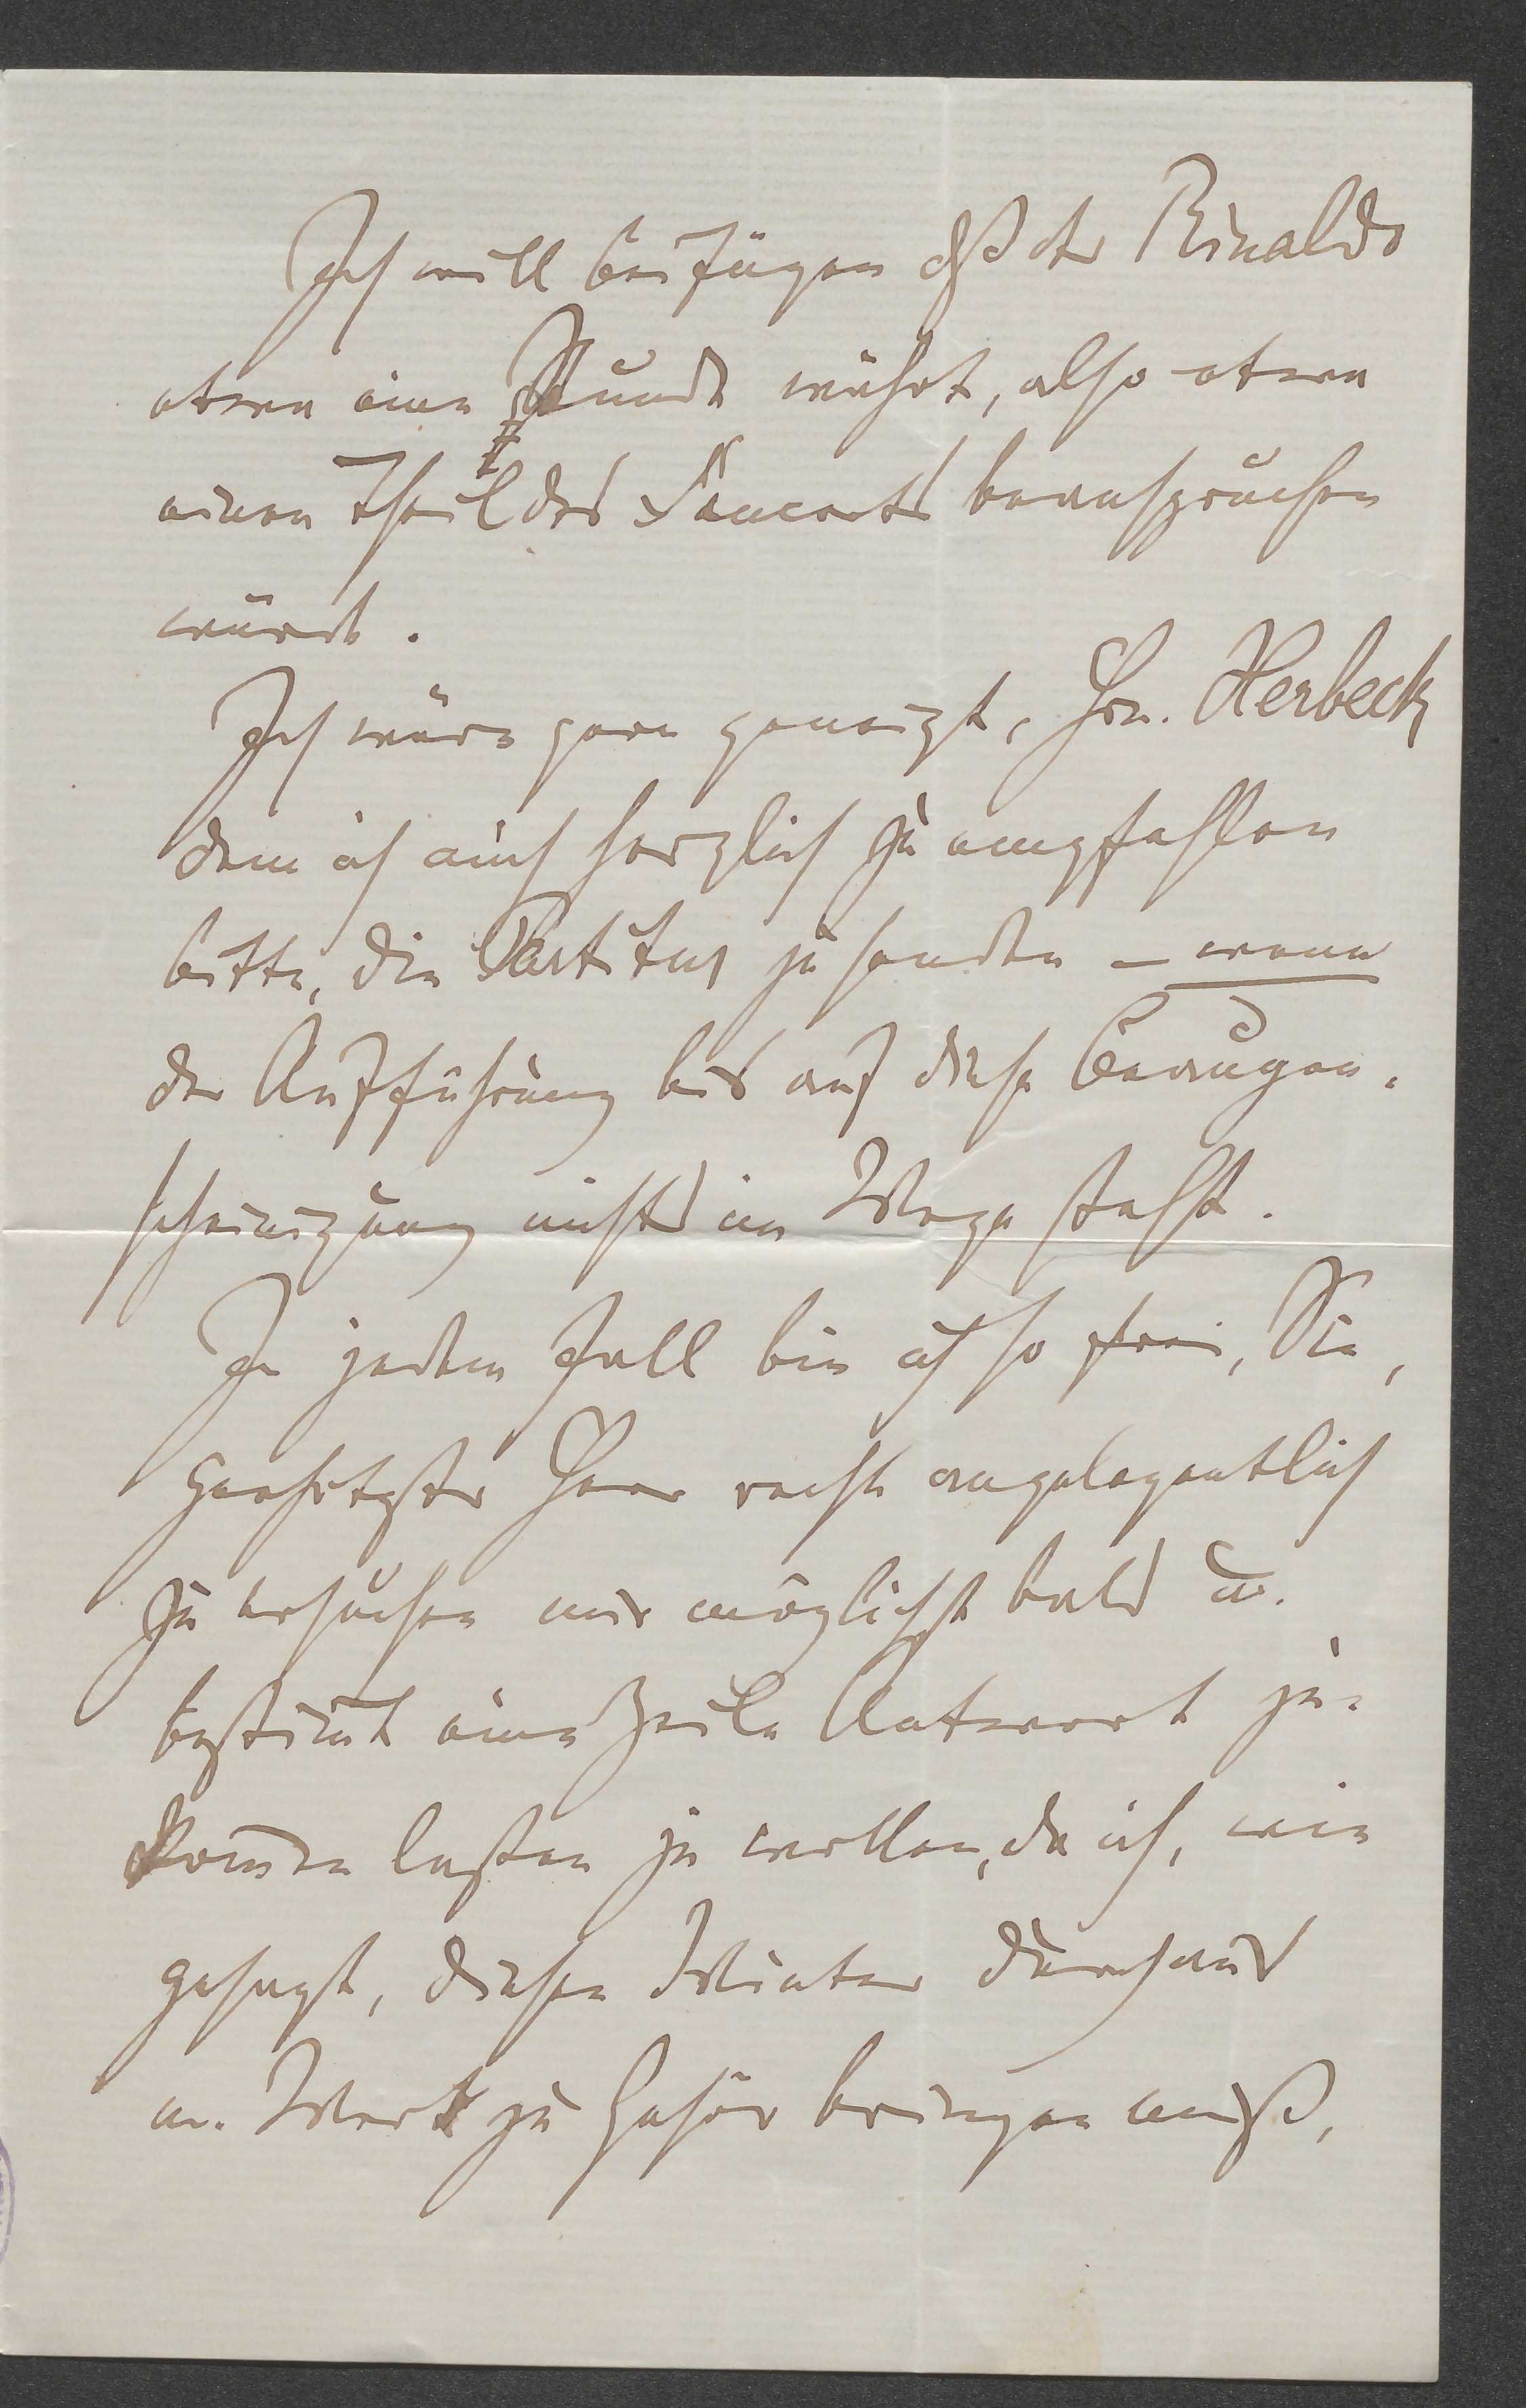 Ich will beifügen dß der Rinaldo
etwa eine Stunde währt, also etwa
einen Theil des Concerts beanspruchen
würde.
Ich wäre gern geneigt, Hrn. Herbeck
dem ich mich herzlich zu empfehlen
bitte, die Partitur zu senden – wenn
der Aufführung bis auf diese Beaugen-
scheinigung nichts im Wege steht.
In jedem Fall bin ich so frei, Sie,
geehrtester Herr recht angelegentlich
zu ersuchen mir möglichst bald u.
bestim̅t eine Zeile Antwort zu-
kom̅en laßen zu wollen, da ich, wie
gesagt, diesen Winter durchaus
m. Werk zu Gehör bringen muß,